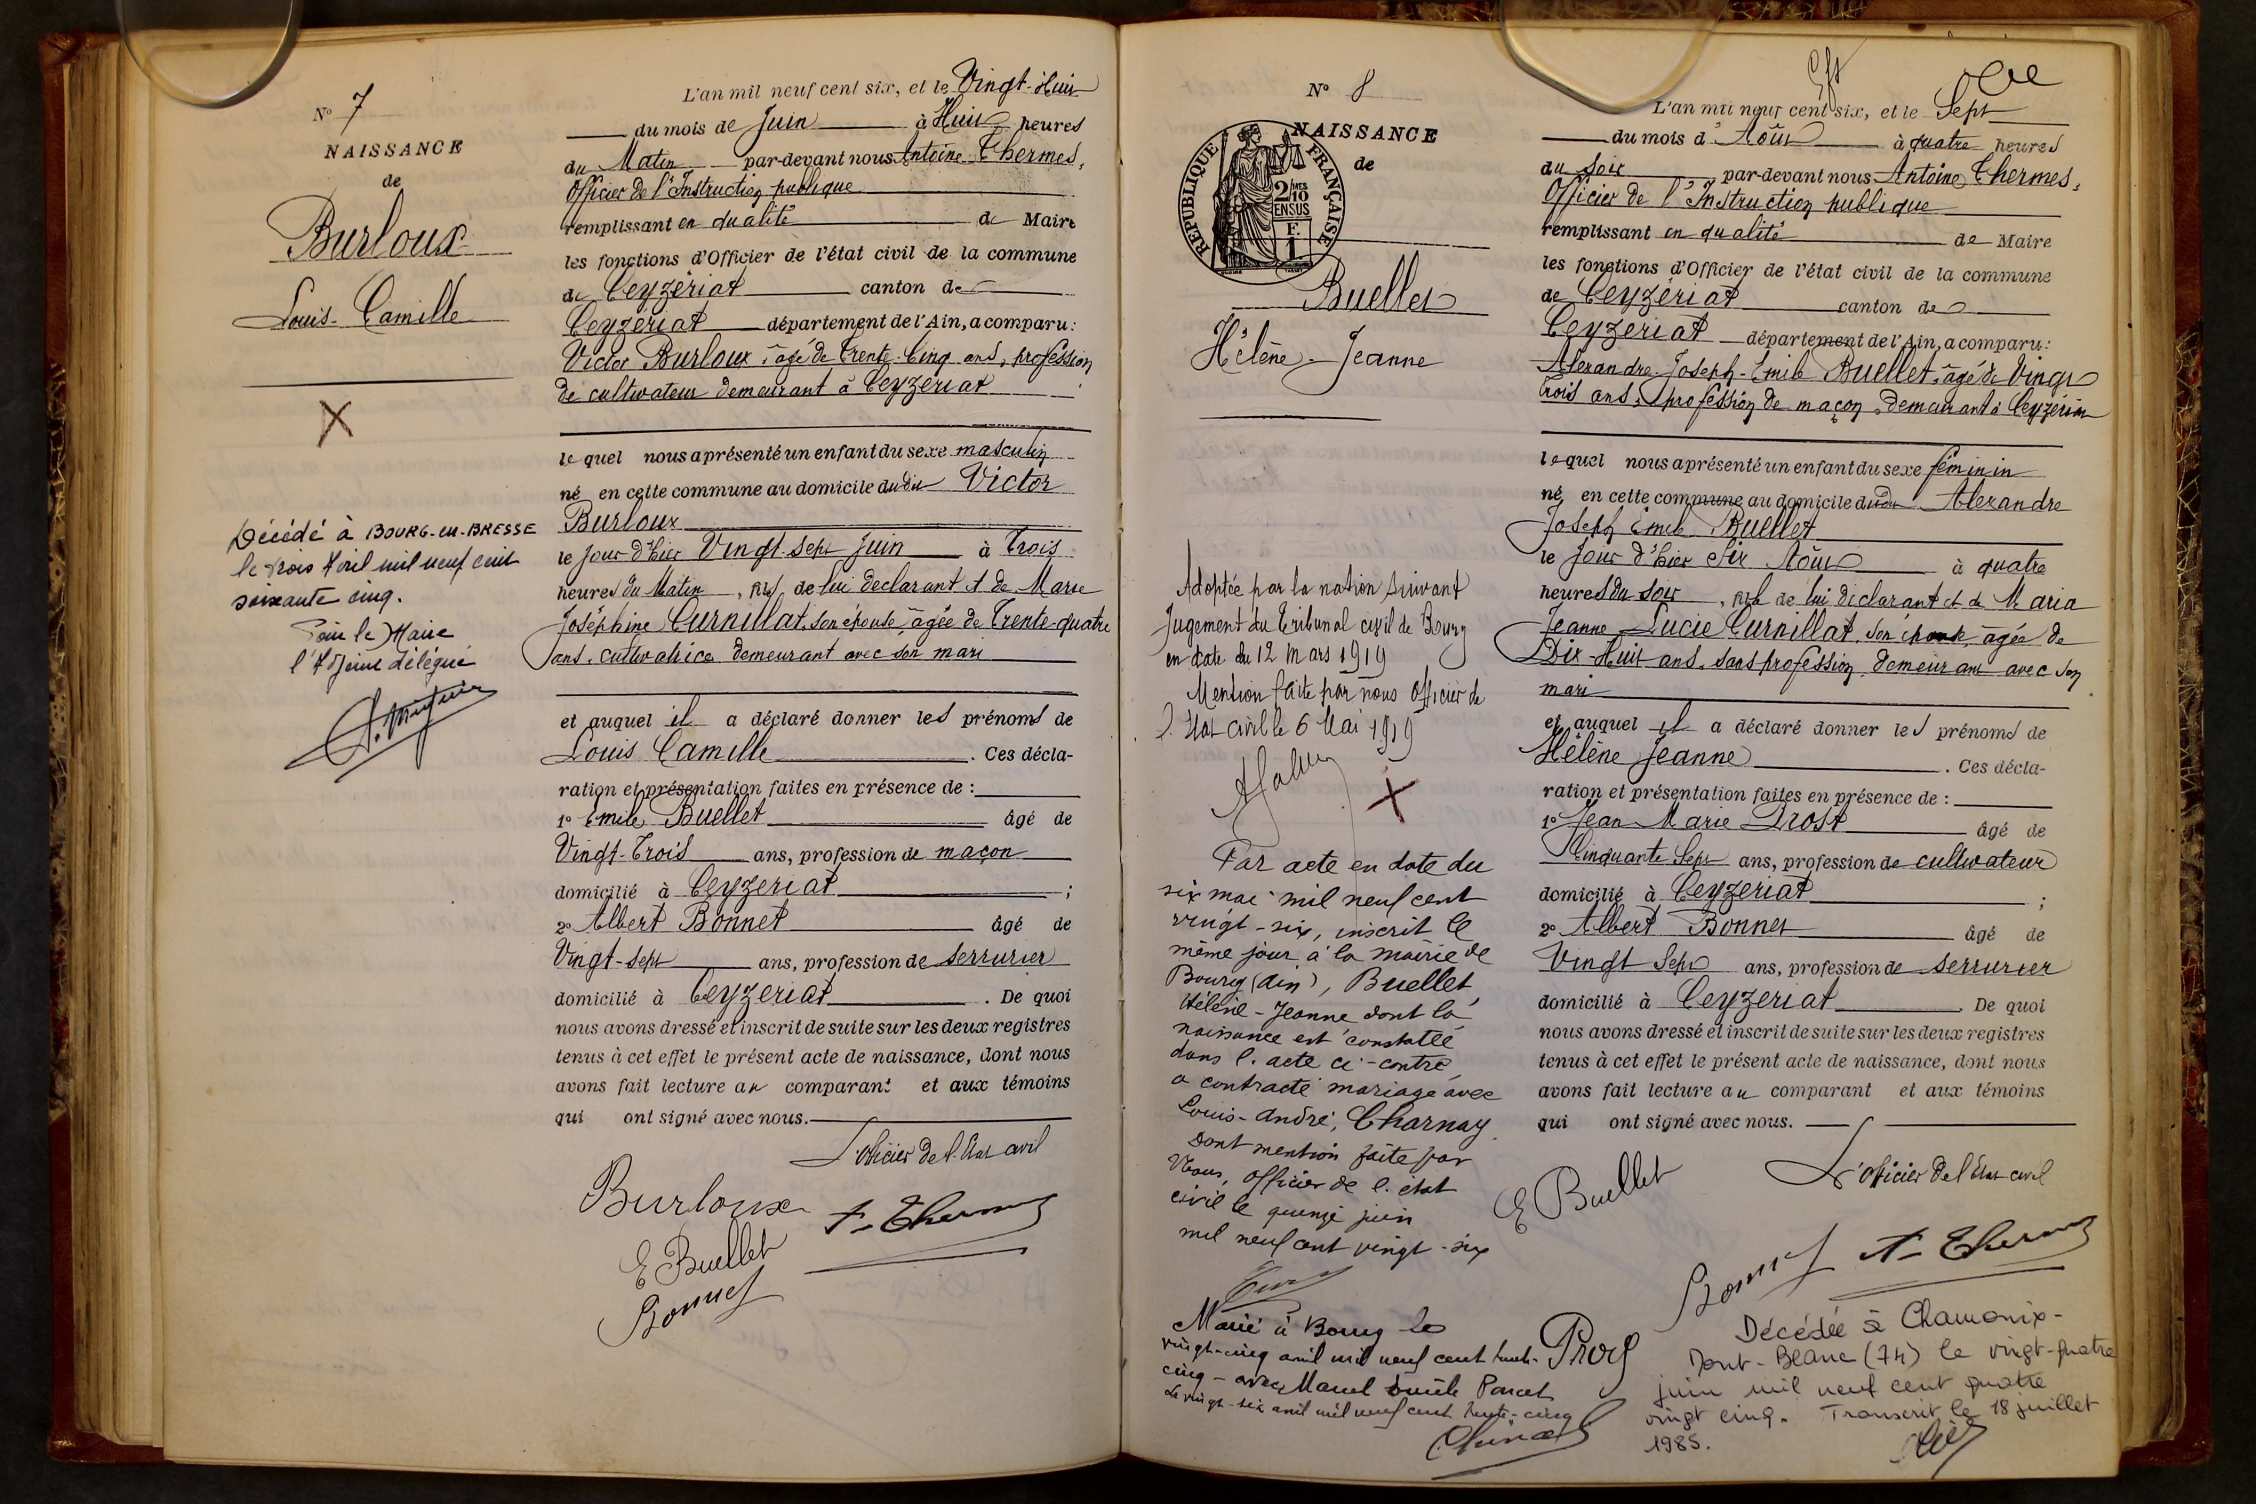 N° 7
NAISSANCE
de
Burloux
Louis-Camille
Décédé à BOURG-EN-BRESSE
le trois Avril mil neuf cent
soixante cinq.
Pour le Maire
l'Adjoint délégué
L'an mil neuf cent six, et le Vingt-Huit
du mois de Juin à Huit heures
du Matin par-devant nous Antoine Thermes,
Officier de l'Instruction publique
remplissant en qualité de Maire
les fonctions d'Officier de l'état civil de la commune
de Ceyzériat canton de
Ceyzériat département de l'Ain, a comparu :
Victor Burloux, âgé de Trente-Cinq ans, profession
de cultivateur demeurant à Ceyzériat
le quel nous a présenté un enfant du sexe masculin
né en cette commune au domicile du dit Victor
Burloux
le jour d'hier Vingt-sept Juin à Trois
heures du Matin, fils de lui déclarant et de Marie
Joséphine Curnillat, son épouse, âgée de Trente-quatre
ans, cultivatrice demeurant avec son mari
et auquel il a déclaré donner les prénoms de
Louis Camille. Ces décla-
ration et présentation faites en présence de :
1° Emile Buellet âgé de
Vingt-Trois ans, profession de maçon
domicilié à Ceyzériat ;
2° Albert Bonnet âgé de
Vingt-sept ans, profession de serrurier
domicilié à Ceyzériat. De quoi
nous avons dressé et inscrit de suite sur les deux registres
tenus à cet effet le présent acte de naissance, dont nous
avons fait lecture au comparant et aux témoins
qui ont signé avec nous.
L'officier de l'Etat civil
Burloux
A. Thermes
E Buellet
Bonnet
N° 8
NAISSANCE
de
RÉPUBLIQUE FRANÇAISE
2/10
EN SUS
F.
1
Buellet
Hélène-Jeanne
Adoptée par la nation suivant
Jugement du Tribunal civil de Bourg
en date du 12 Mars 1919
Mention faite par nous Officier de
l'Etat civil le 6 Mai 1919
Par acte en date du
six mai mil neuf cent
vingt-six, inscrit le
même jour à la mairie de
Bourg (Ain), Buellet,
Hélène-Jeanne dont la
naissance est constatée
dans l'acte ci-contre,
a contracté mariage avec
Louis-André, Charnay.
Dont mention faite par
Nous, officier de l'état
civil le quinze juin
mil neuf cent vingt-six
Marié à Bourg le
vingt-cinq avril mil neuf cent trente-
cinq - avec Marcel Emile Parcet
Le vingt-six avril mil neuf cent trente-cinq
L'an mil neuf cent six, et le Sept
du mois d'Août à quatre heures
du soir par-devant nous Antoine Thermes,
Officier de l'Instruction publique
remplissant en qualité de Maire
les fonctions d'Officier de l'état civil de la commune
de Ceyzériat canton de
Ceyzériat département de l'Ain, a comparu :
Alexandre-Joseph-Emile Buellet, âgé de Vingt
trois ans, profession de maçon demeurant à Ceyzériat
le quel nous a présenté un enfant du sexe féminin
né en cette commune au domicile du dit Alexandre
Joseph Emile Buellet
le jour d'hier six Août à quatre
heures du soir, fille de lui déclarant et de Maria
Jeanne Lucie Curnillat, son épouse, âgée de
Dix-Huit ans, sans profession, demeurant avec son
mari
et auquel il a déclaré donner les prénoms de
Hélène Jeanne. Ces décla-
ration et présentation faites en présence de :
1° Jean Marie Prost âgé de
Cinquante Sept ans, profession de cultivateur
domicilié à Ceyzériat ;
2° Albert Bonnet âgé de
Vingt Sept ans, profession de serrurier
domicilié à Ceyzériat. De quoi
nous avons dressé et inscrit de suite sur les deux registres
tenus à cet effet le présent acte de naissance, dont nous
avons fait lecture au comparant et aux témoins
qui ont signé avec nous.
L'officier de l'Etat civil
E Buellet
Bonnet
A. Thermes
Décédée à Chamonix-
Mont-Blanc (74) le vingt-quatre
juin mil neuf cent quatre
vingt cinq. Transcrit le 18 juillet
1985.